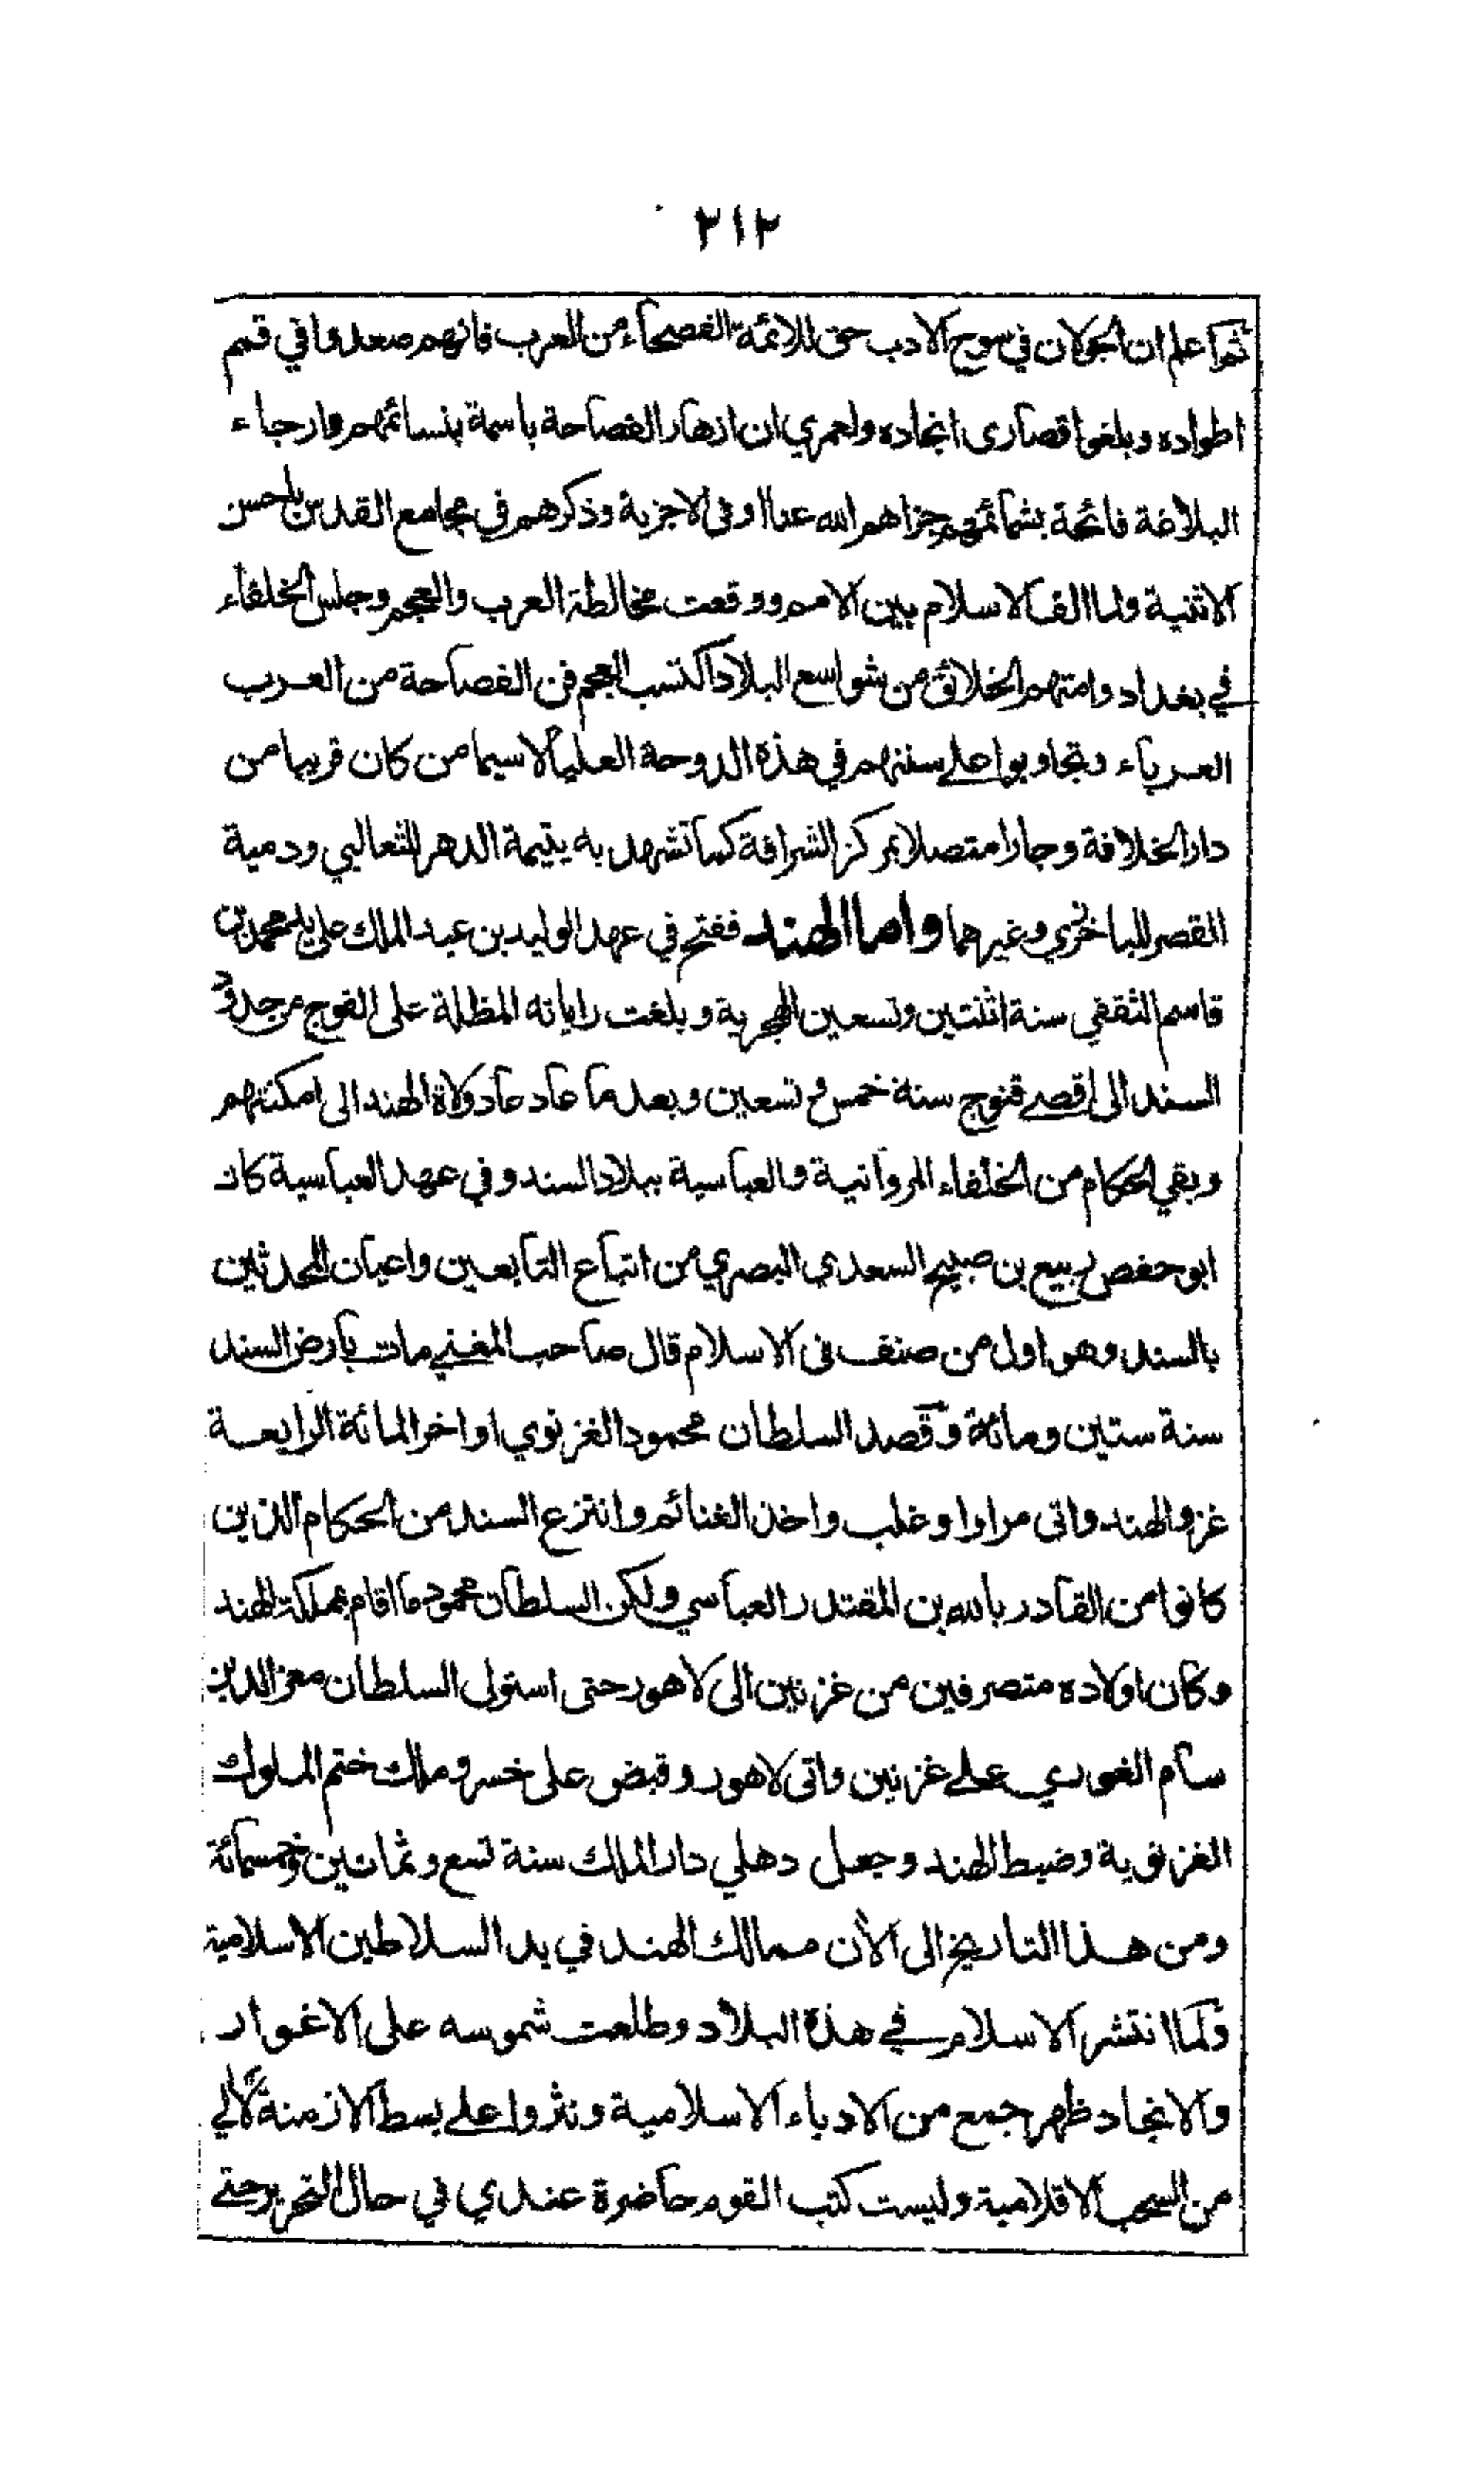 ٢١٢
ثم اعلم ان الجولان في سوح الادب حق للائمة الفصحاء من العرب فانهم صعدوا في قمم
اطواده وبلغوا قصارى انجاده ولعمري ان ازهار الفصاحة باسمة بنسائمهم وارجاء
البلاغة فائحة بشمائمهم جزاهم الله عنا اوفى الاجزية وذكرهم في مجامع القدس باحسن
الاثنية ولما الف الاسلام بين الامم ووقعت مخالطة العرب والعجم وجلس الخلفاء
في بغداد وامتهم الخلائق من شواسع البلاد اكتسب العجم فن الفصاحة من العرب
العرباء وتجاوبوا على سننهم في هذه الدوحة العليا لاسيما من كان قريبا من
دار الخلافة وجارا متصلا بمركز الشرافة كما تشهد به يتيمة الدهر للثعالبي ودمية
القصر للباخرزي وغيرهما واما الهند ففتح في عهد الوليد بن عبد الملك على يد محمد بن
قاسم الثقفي سنة اثنتين وتسعين الهجرية وبلغت راياته المظلة على الفوج من حدود
السند الى اقصى قنوج سنة خمس و تسعين وبعد ما عاد عاد ولاة الهند الى امكنتهم
وبقي الحكام من الخلفاء المروانية والعباسية ببلاد السند وفي عهد العباسية كان
ابو حفص ربيع بن صبيح السعدي البصري من اتباع التابعين واعيان المحدثين
بالسند وهو اول من صنف في الاسلام قال صاحب المغني مات بارض السند
سنة ستين ومائة وقصد السلطان محمود الغزنوي اواخر المائة الرابعة
غزو الهند واتى مرارا وغلب واخذ الغنائم وانتزع السند من الحكام الذين
كانوا من القادر بالله بن المقتدر العباسي ولكن السلطان محمود ما اقام بمملكة الهند
وكان اولاده متصرفين من غزنين الى لاهور حتى استولى السلطان معز الدين
سام الغوري على غزنين واتى لاهور وقبض على خسرو ملك ختم الملوك
الغزنوية وضبط الهند وجعل دهلي دار الملك سنة تسع وثمانين وخمسمائة
ومن هذا التاريخ الى الأن ممالك الهند في يد السلاطين الاسلامية
ولما انتشر الاسلام في هذه البلاد وطلعت شموسه على الاغوار
والانجاد ظهر جمع من الادباء الاسلامية ونثروا على بسط الازمنة لآلي
من السحب الاقلامية وليست كتب القوم حاضرة عندي في حال التحرير حتى